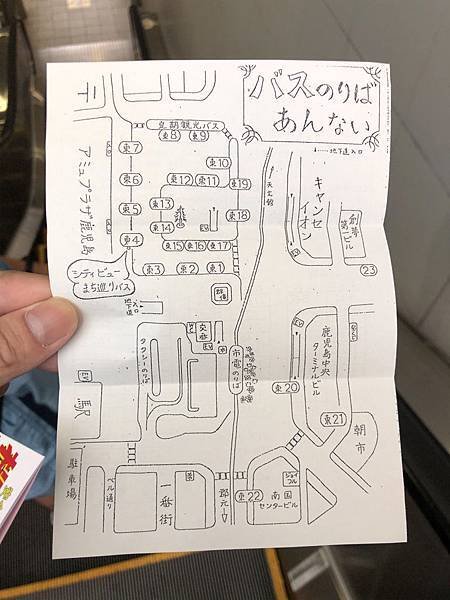 バスのりば
あんない
‥‥地下道入口
〒
皇胡観光バス
東8
東9
東7
東6
東5
東4
東10
東12
東11
東19
東13
東14
東18
東15
東16
東17
東3
東2
東1
アミュプラザ鹿児島
シティビュー
まち巡りバス
天文館
キャンセ
イオン
創夢
第一ビル
23
地下道
入口
交番
タクシーのりば
市電のりば
鹿児島中央
ターミナルビル
東20
東21
朝市
EV
駅
駐車場
ベル通り
一番街
郡元
東22
南国
センタービル
ジョイフル